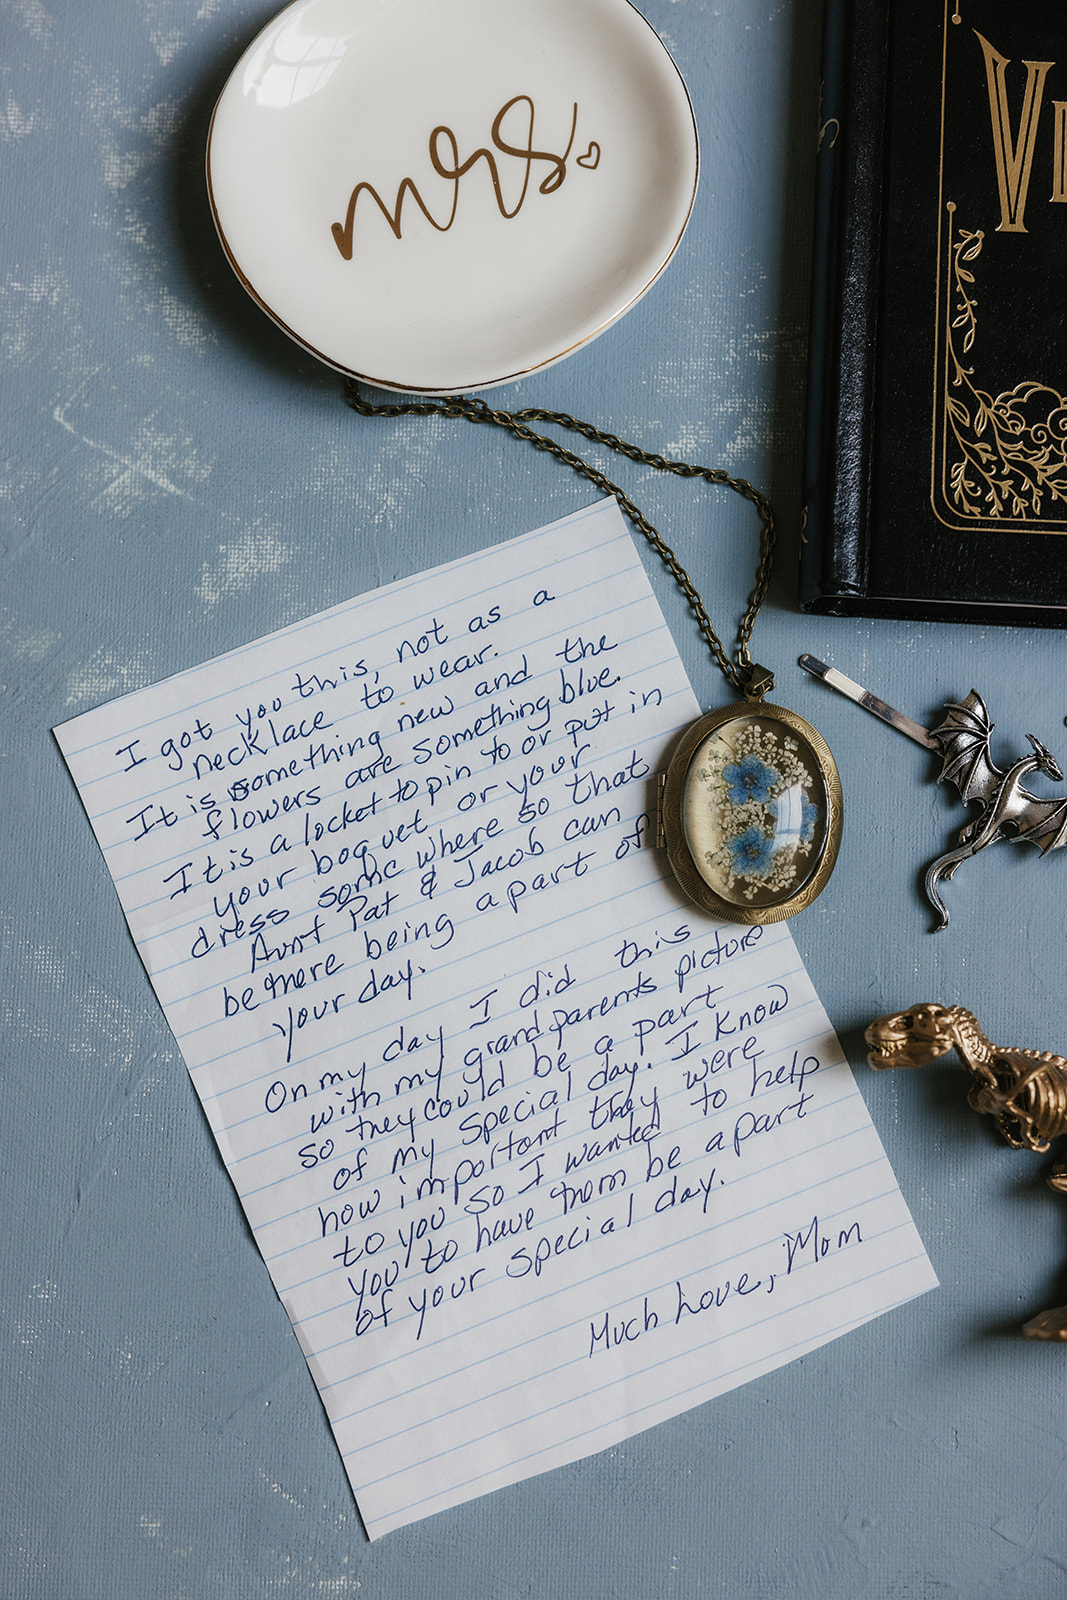 mrs.
V
I got you this, not as a
necklace to wear.
It is something new and the
flowers are something blue.
It is a locket to pin to or put in
your boquet or your
dress some where so that
Aunt Pat & Jacob can
be there being a part of
your day.
On my day I did this
with my grandparents picture
so they could be a part
of my special day. I know
how important they were
to you so I wanted to help
you to have them be a part
of your special day.
Much Love, Mom